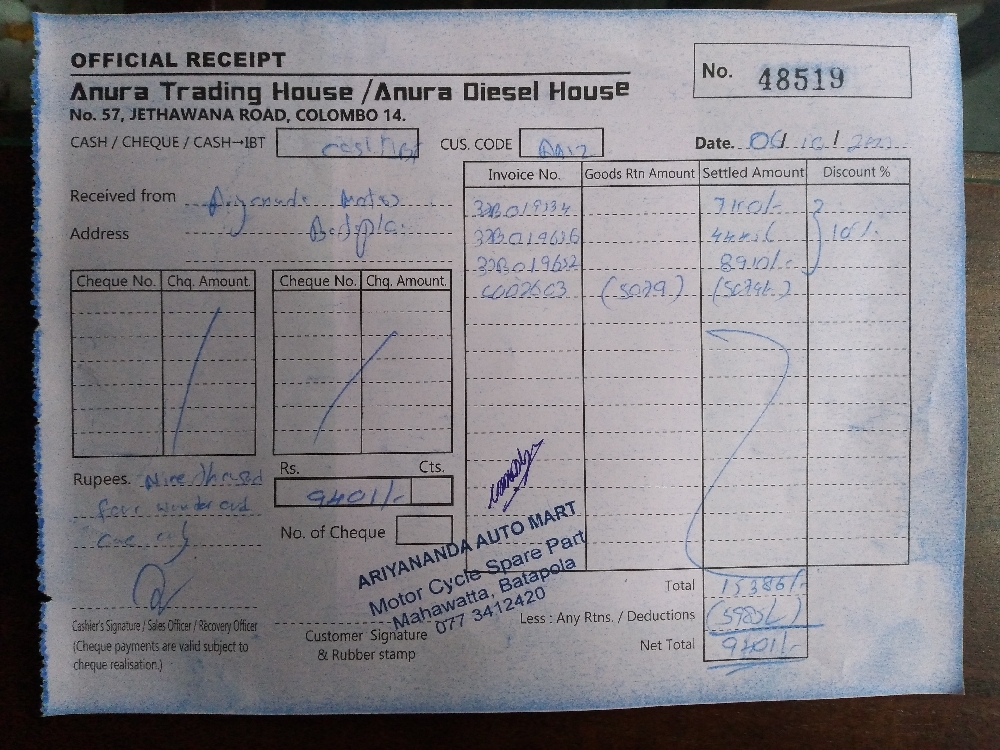 OFFICIAL RECEIPT
No. 48519
Anura Trading House / Anura Diesel House
No. 57, JETHAWANA ROAD, COLOMBO 14.
CASH / CHEQUE / CASH→IBT
CUS. CODE
Date.
Invoice No. Goods Rtn Amount Settled Amount Discount %
Received from
Address
7100/-
8910/-
10%
(5029)
Cheque No. Chq. Amount. Cheque No. Chq. Amount.
Rupees. Nine thousand
four hundred and
one only
Rs. Cts.
9401/-
No. of Cheque
ARIYANANDA AUTO MART
Motor Cycle Spare Part
Mahawatta, Batapola
077 3412420
Total 15386/-
Less : Any Rtns. / Deductions (5985/-)
Net Total 9401/-
Cashier's Signature / Sales Officer / Recovery Officer
(Cheque payments are valid subject to
cheque realisation.)
Customer Signature
& Rubber stamp